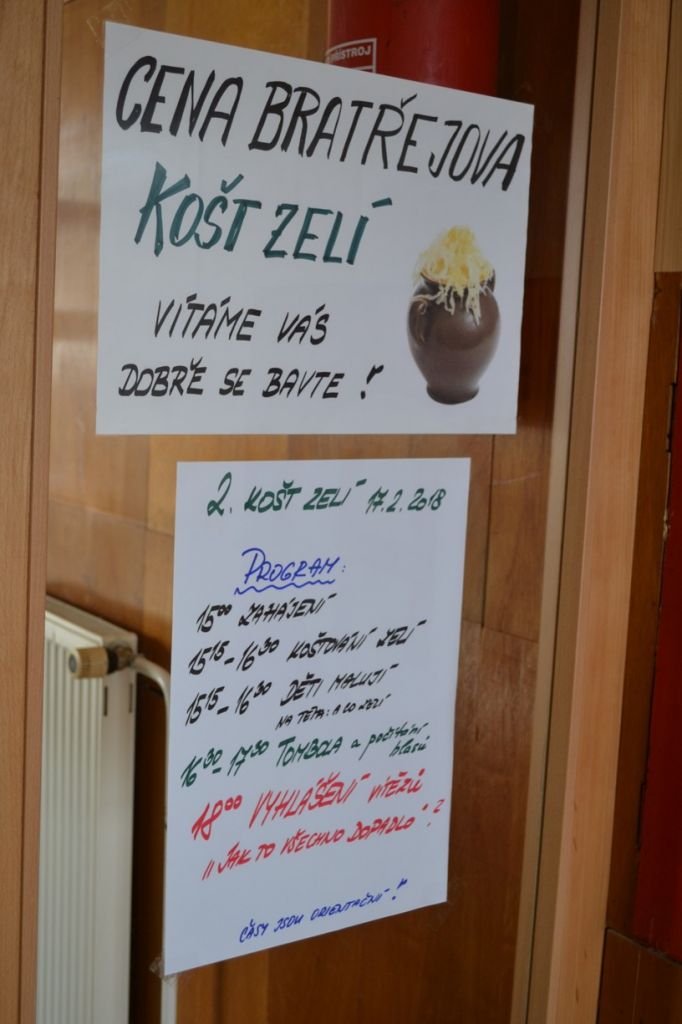 PŘÍSTROJ
CENA BRATŘEJOVA
KOŠT ZELÍ
VÍTÁME VÁS
DOBŘE SE BAVTE !
2. KOŠT ZELÍ 17.2.2018
PROGRAM:
15⁰⁰ ZAHÁJENÍ
15¹⁵-16³⁰ KOŠTOVÁNÍ ZELÍ
15¹⁵-16³⁰ DĚTI MALUJÍ
NA TÉMA: A CO ZELÍ
16³⁰-17³⁰ TOMBOLA a počítání
hlasů
18⁰⁰ VYHLÁŠENÍ VÍTĚZŮ
"JAK TO VŠECHNO DOPADLO"?
ČASY JSOU ORIENTAČNÍ !